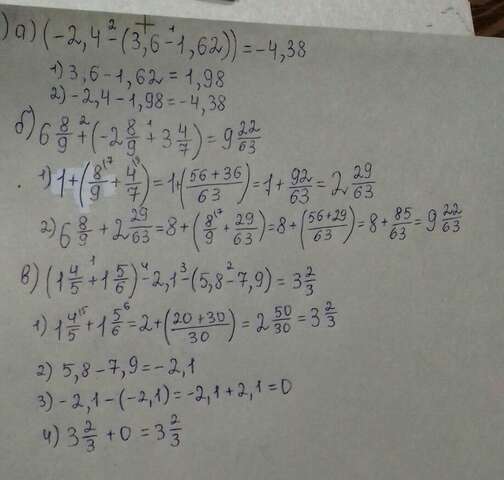 ) а) (-2,4 - (3,6 - 1,62)) = -4,38
1) 3,6 - 1,62 = 1,98
2) -2,4 - 1,98 = -4,38
б) 6 8/9 + (-2 8/9 + 3 4/7) = 9 22/63
1) 1 + (8/9 + 4/7) = 1 + (56+36/63) = 1 + 92/63 = 2 29/63
2) 6 8/9 + 2 29/63 = 8 + (8/9 + 29/63) = 8 + (56+29/63) = 8 + 85/63 = 9 22/63
в) (1 4/5 + 1 5/6) - 2,1 - (5,8 - 7,9) = 3 2/3
1) 1 4/5 + 1 5/6 = 2 + (20+30/30) = 2 50/30 = 3 2/3
2) 5,8 - 7,9 = -2,1
3) -2,1 - (-2,1) = -2,1 + 2,1 = 0
4) 3 2/3 + 0 = 3 2/3